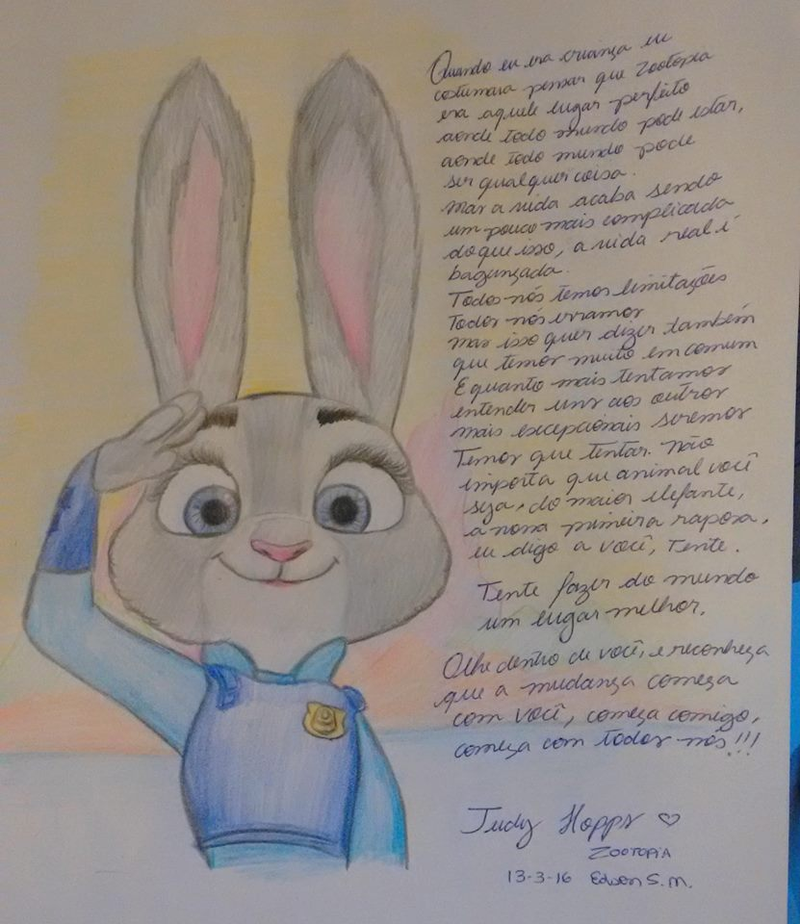 Quando eu era criança eu
costumava pensar que Zootopia
era aquele lugar perfeito
aonde todo mundo pode estar,
aonde todo mundo pode
ser qualquer coisa.
Mas a vida acaba sendo
um pouco mais complicada
do que isso, a vida real é
bagunçada.
Todos nós temos limitações
Todos nós erramos
mas isso quer dizer também
que temos muito em comum
E quanto mais tentamos
entender uns aos outros
mais excepcionais seremos
Temos que tentar. Não
importa que animal você
seja, do maior elefante,
a nossa primeira raposa,
eu digo a você, Tente.
Tente fazer do mundo
um lugar melhor.
Olhe dentro de você, e reconheça
que a mudança começa
com você, começa comigo,
começa com todos nós!!!
Judy Hopps ♡
ZOOTOPIA
13-3-16 Edson S.M.